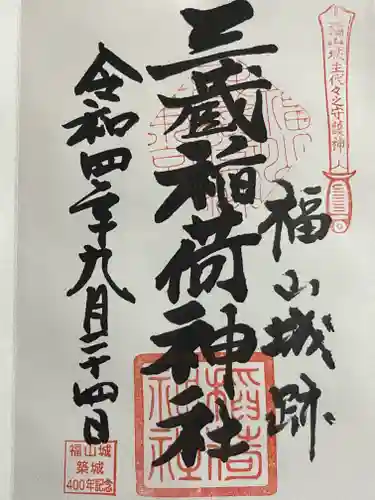 福山城主代々之守護神
福山城跡
三蔵稲荷神社
令和四年九月二十四日
稲荷神社
福山城
築城
400年記念